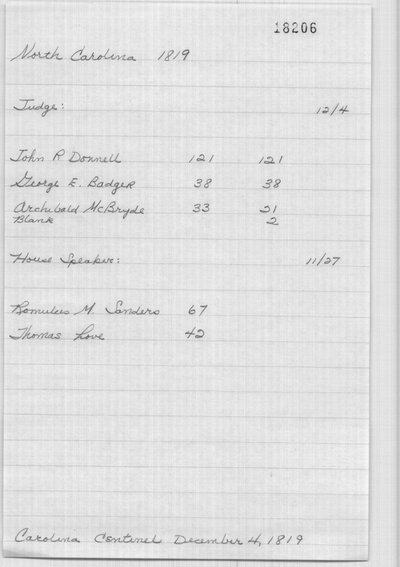 18206
North Carolina 1819
Judge: 12/4
John R Donnell 121 121
George E. Badger 38 38
Archibald McBryde 33 31
Blank 2
House Speaker: 11/27
Romulus M. Sanders 67
Thomas Love 42
Carolina Centinel December 4, 1819